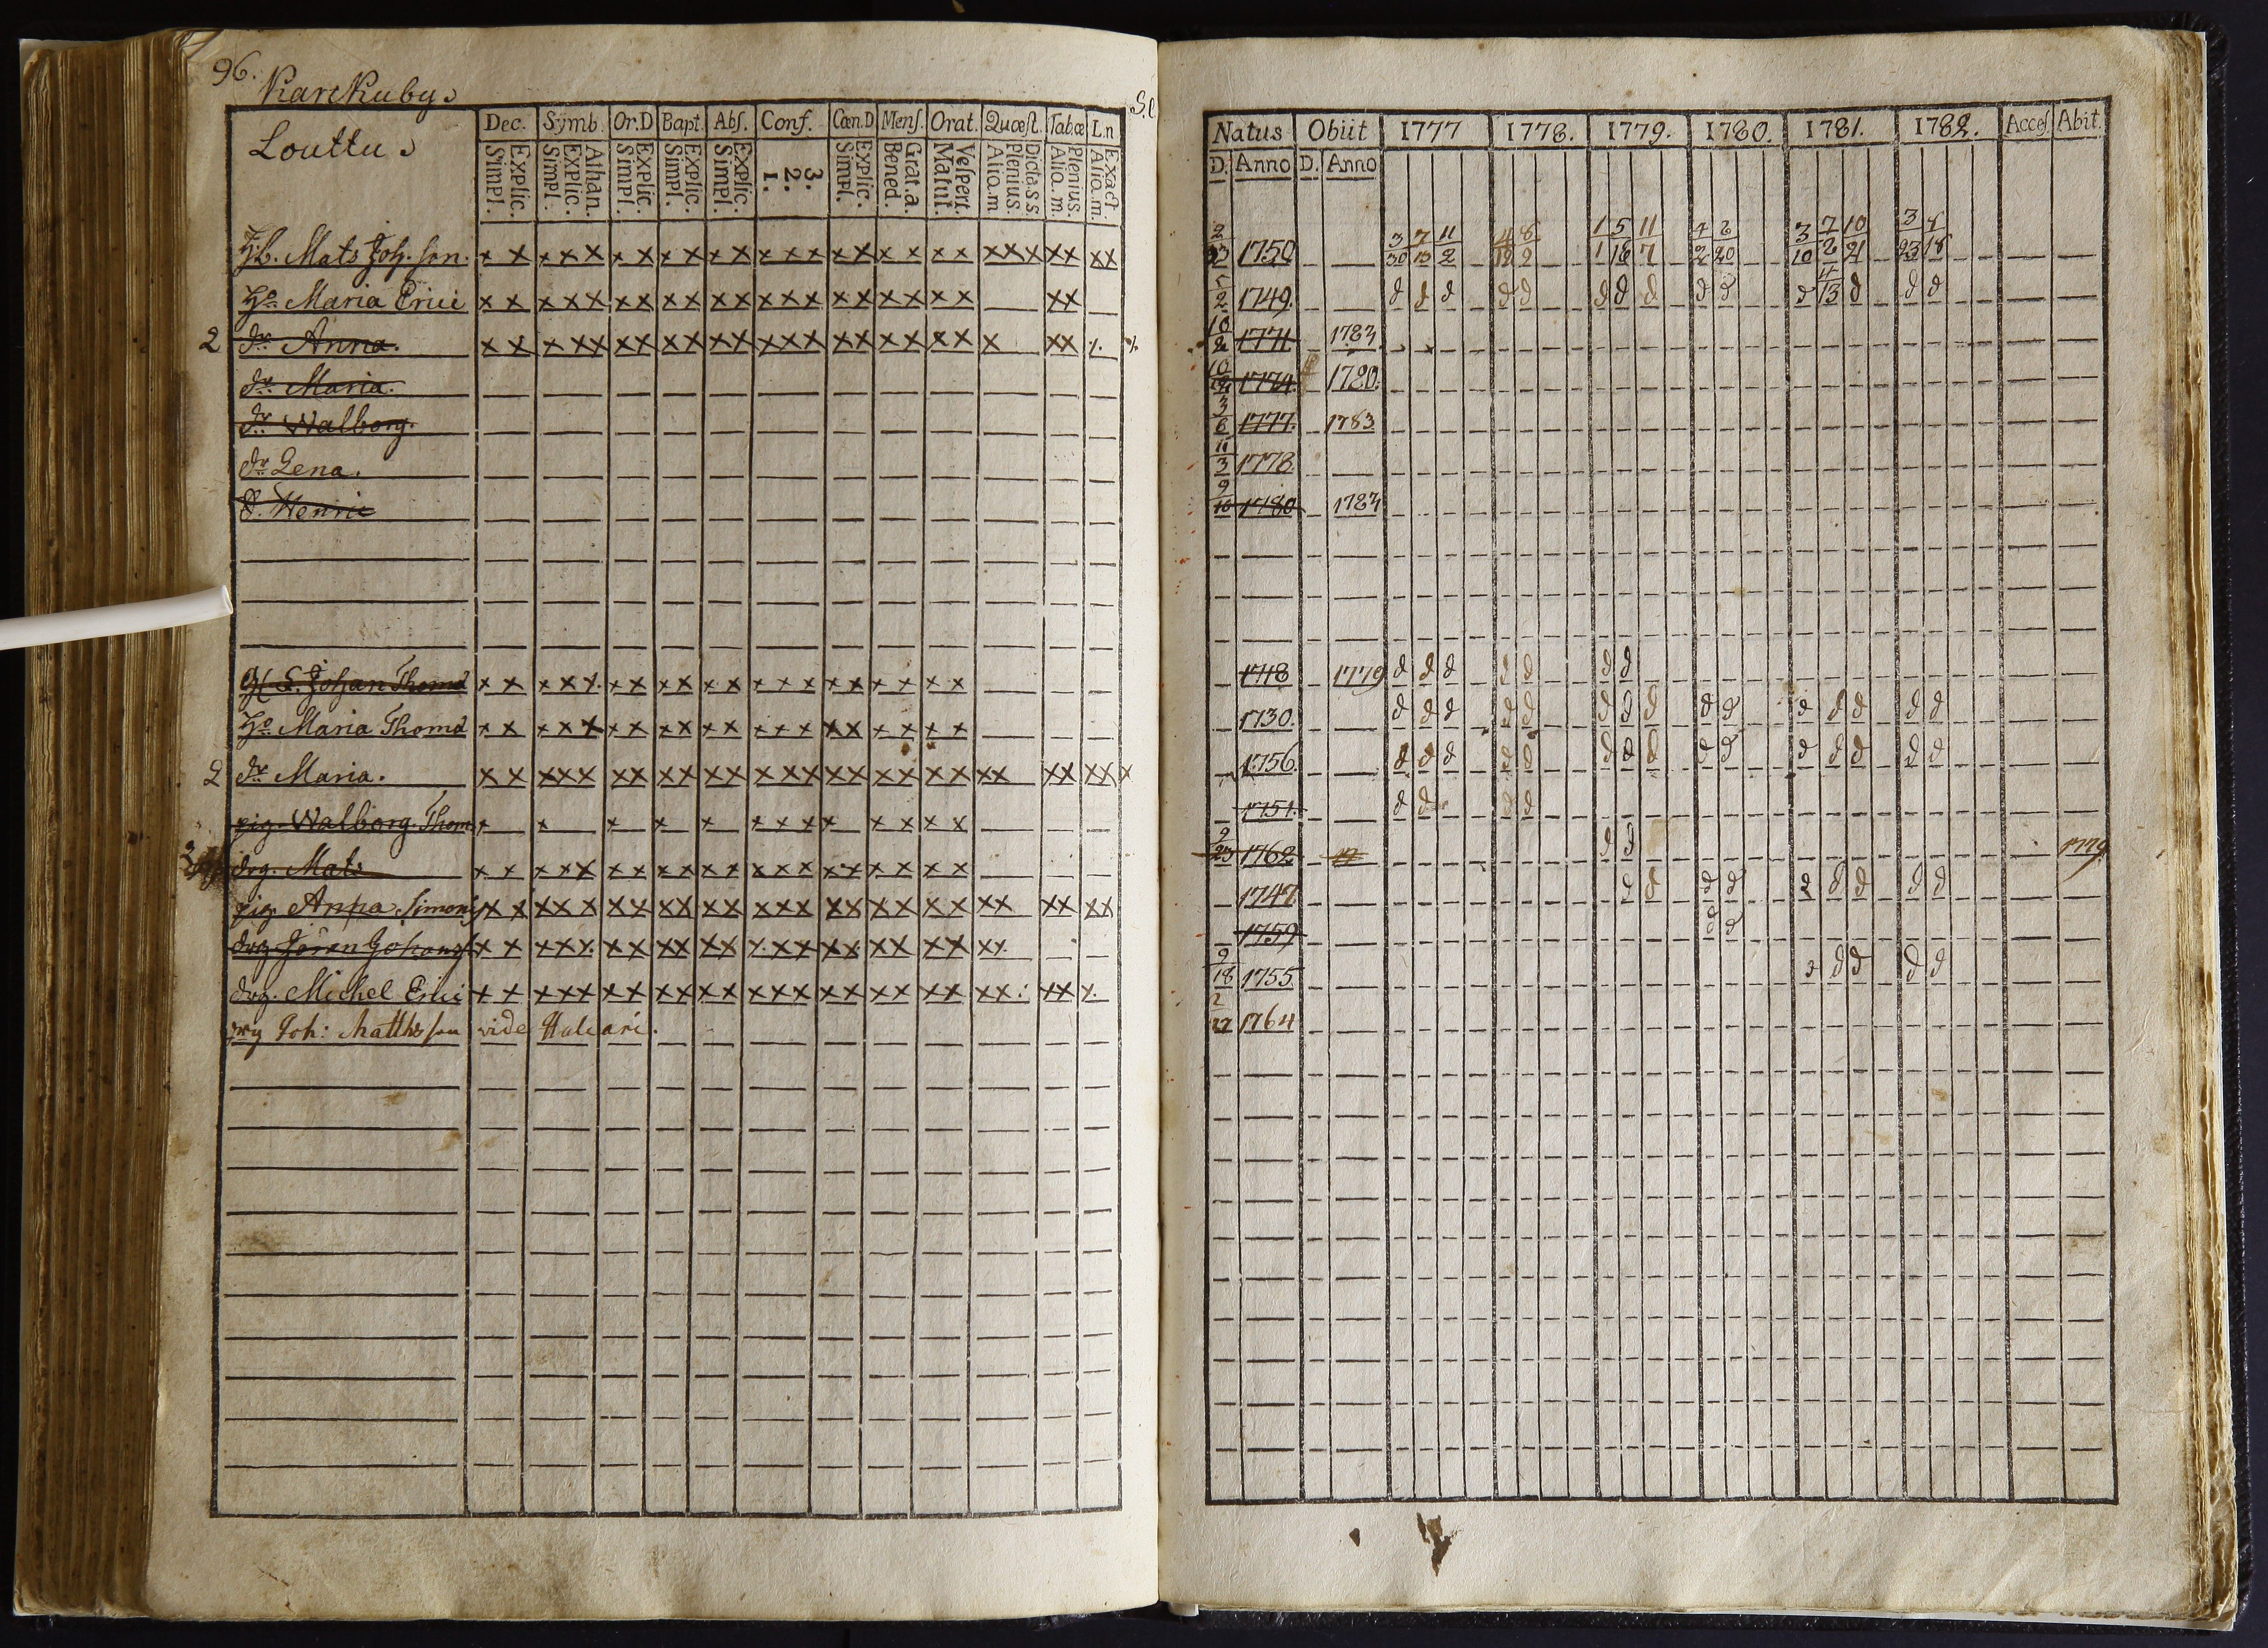 96.
Karckuby
Louttu
Dec. Symb. Or.D Bapt. Abs. Conf. Cœn.D Mens. Orat. Quæst. Tabœ L.n
Simpl. Explic. Simpl. Explic. Athan. Simpl. Explic. Simpl. Explic. Simpl. Explic. 1. 2. 3. Simpl. Explic. Bened. Grat.a. Matut. Vespert. Alio.m Plenius. Dicta.s.s. Alio.m. Plenius. Alio.m. Exact.
Mats Joh. son. x x x x x x x x x x x x x x x x x x x x x x x x x x x
Maria Erici x x x x x x x x x x x x x x x x x x x x x x
2 dr Anna. x x x x x x x x x x x x x x x x x x x x x x x
dr Maria.
dr Walborg.
dr Lena.
Henric
Johan Thomæ x x x x x x x x x x x x x x x x x x x x
Maria Thomæ x x x x x x x x x x x x x x x x x x x x
2 dr Maria. x x x x x x x x x x x x x x x x x x x x x x x x x x x
pig. Walborg Thom x x x x x x x x x x x x x
drg. Mats x x x x x x x x x x x x x x x x x x x x
pig. Anna Simons x x x x x x x x x x x x x x x x x x x x x x x x x x
drg Jöran Johans x x x x x x x x x x x x x x x x x x x x x x
drg. Michel Erici x x x x x x x x x x x x x x x x x x x x x x x x x
Joh: Matths son vide
Natus Obiit 1777 1778. 1779. 1780. 1781. 1782. Acces Abit.
D. Anno D. Anno
3 7 11 4 8 1 5 11 4 2 3 7 10 3 4
1750 30 13 2 12 2 1 16 7 2 20 10 2 21 23 18
5/2 1749. d d d d d d d d d d d 4/13 d d d
1771 1783
1774. 1780.
3/6 1777. 1783
11/3 1778
9/10 1780 1783
1718 1779 d d d d d d d
1730. d d d d d d d d d d d d d d d
1756. d d d d d d d d d d d d d d d
1751. d d d d
9/23 1762 17 d d 1779
1747 d d d d d d d d d
1759 d d
9/18 1755 d d d d d
2/27 1764